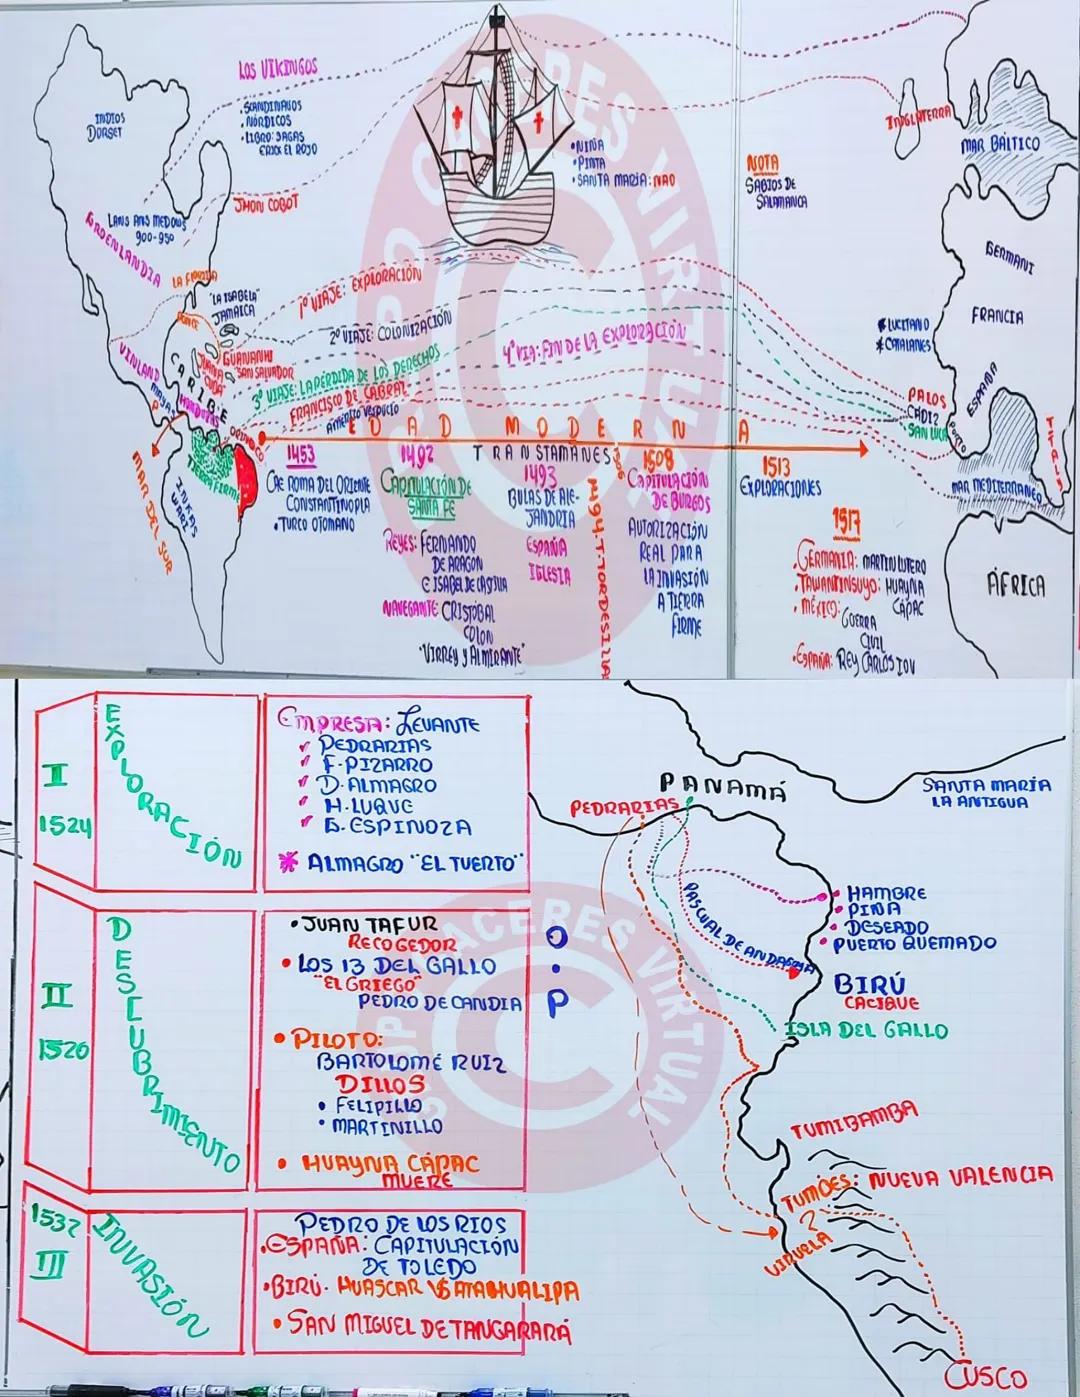 LOS VIKINGOS
• SCANDINAVOS
• NÓRDICOS
• LIBRO: SAGAS
ERICK EL ROJO
INDIOS
DORSET
JHON COBOT
LANS ANS MEDOWS
900-950
GROENLANDIA
LA FLORIDA
"LA ISABELA"
JAMAICA
VINLAND
GUANANHI
SAN SALVADOR
CUBA
CARIBE
MAYAS
HONDURAS
TIERRA FIRME
INKAS
WARIS
MAR DEL SUR
• NIÑA
• PINTA
• SANTA MARÍA: NAO
NOTA
SABIOS DE
SALAMANCA
INGLATERRA
MAR BÁLTICO
GERMANI
FRANCIA
* LUCITANO
* CATALANES
ESPAÑA
PALOS
CÁDIZ
SAN LUCA
PORTO
ITALIA
MAR MEDITERRANEO
ÁFRICA
1º VIAJE: EXPLORACIÓN
2º VIAJE: COLONIZACIÓN
3º VIAJE: LA PÉRDIDA DE LOS DERECHOS
4º VIA: FIN DE LA EXPLORACIÓN
FRANCISCO DE CABRAL
AMERICO VESPUCIO
EDAD MODERNA
TRANSTAMANES
1453
CAE ROMA DEL ORIENTE
CONSTANTINOPLA
• TURCO OTOMANO
1492
CAPITULACIÓN DE
SANTA FE
REYES: FERNANDO
DE ARAGON
E ISABEL DE CASTILLA
NAVEGANTE: CRISTÓBAL
COLON
"VIRREY Y ALMIRANTE"
1493
BULAS DE ALE-
JANDRIA
ESPAÑA
IGLESIA
1494. T. TORDESILLA
1508
CAPITULACIÓN
DE BURGOS
AUTORIZACIÓN
REAL PARA
LA INVASIÓN
A TIERRA
FIRME
1513
EXPLORACIONES
1517
• GERMANIA: MARTIN LUTERO
• TAWANTINSUYO: HUAYNA
CÁPAC
• MÉXICO: GUERRA
CIVIL
• ESPAÑA: REY CARLOS I OU
I
1524
EXPLORACIÓN
EMPRESA: LEVANTE
✓ PEDRARIAS
✓ F. PIZARRO
✓ D. ALMAGRO
✓ H. LUQUE
✓ G. ESPINOZA
* ALMAGRO "EL TUERTO"
II
1526
DESCUBRIMIENTO
• JUAN TAFUR
RECOGEDOR
• LOS 13 DEL GALLO
"EL GRIEGO"
PEDRO DE CANDIA
• PILOTO:
BARTOLOMÉ RUIZ
DILLOS
• FELIPILLO
• MARTINILLO
• HUAYNA CÁPAC
MUERE
O.P
1532
III
INVASIÓN
PEDRO DE LOS RIOS
• ESPAÑA: CAPITULACIÓN
DE TOLEDO
• BIRÚ. HUASCAR VS ATAHUALIPA
• SAN MIGUEL DE TANGARARÁ
PANAMÁ
PEDRARIAS
SANTA MARÍA
LA ANTIGUA
PASCUAL DE ANDAGOYA
• HAMBRE
• PIÑA
• DESEADO
• PUERTO QUEMADO
BIRÚ
CACIQUE
ISLA DEL GALLO
TUMIBAMBA
TUMBES: NUEVA VALENCIA
VIRUELA
CUSCO
GRUPO CÁCERES VIRTUAL
GRUPO CACERES VIRTUAL